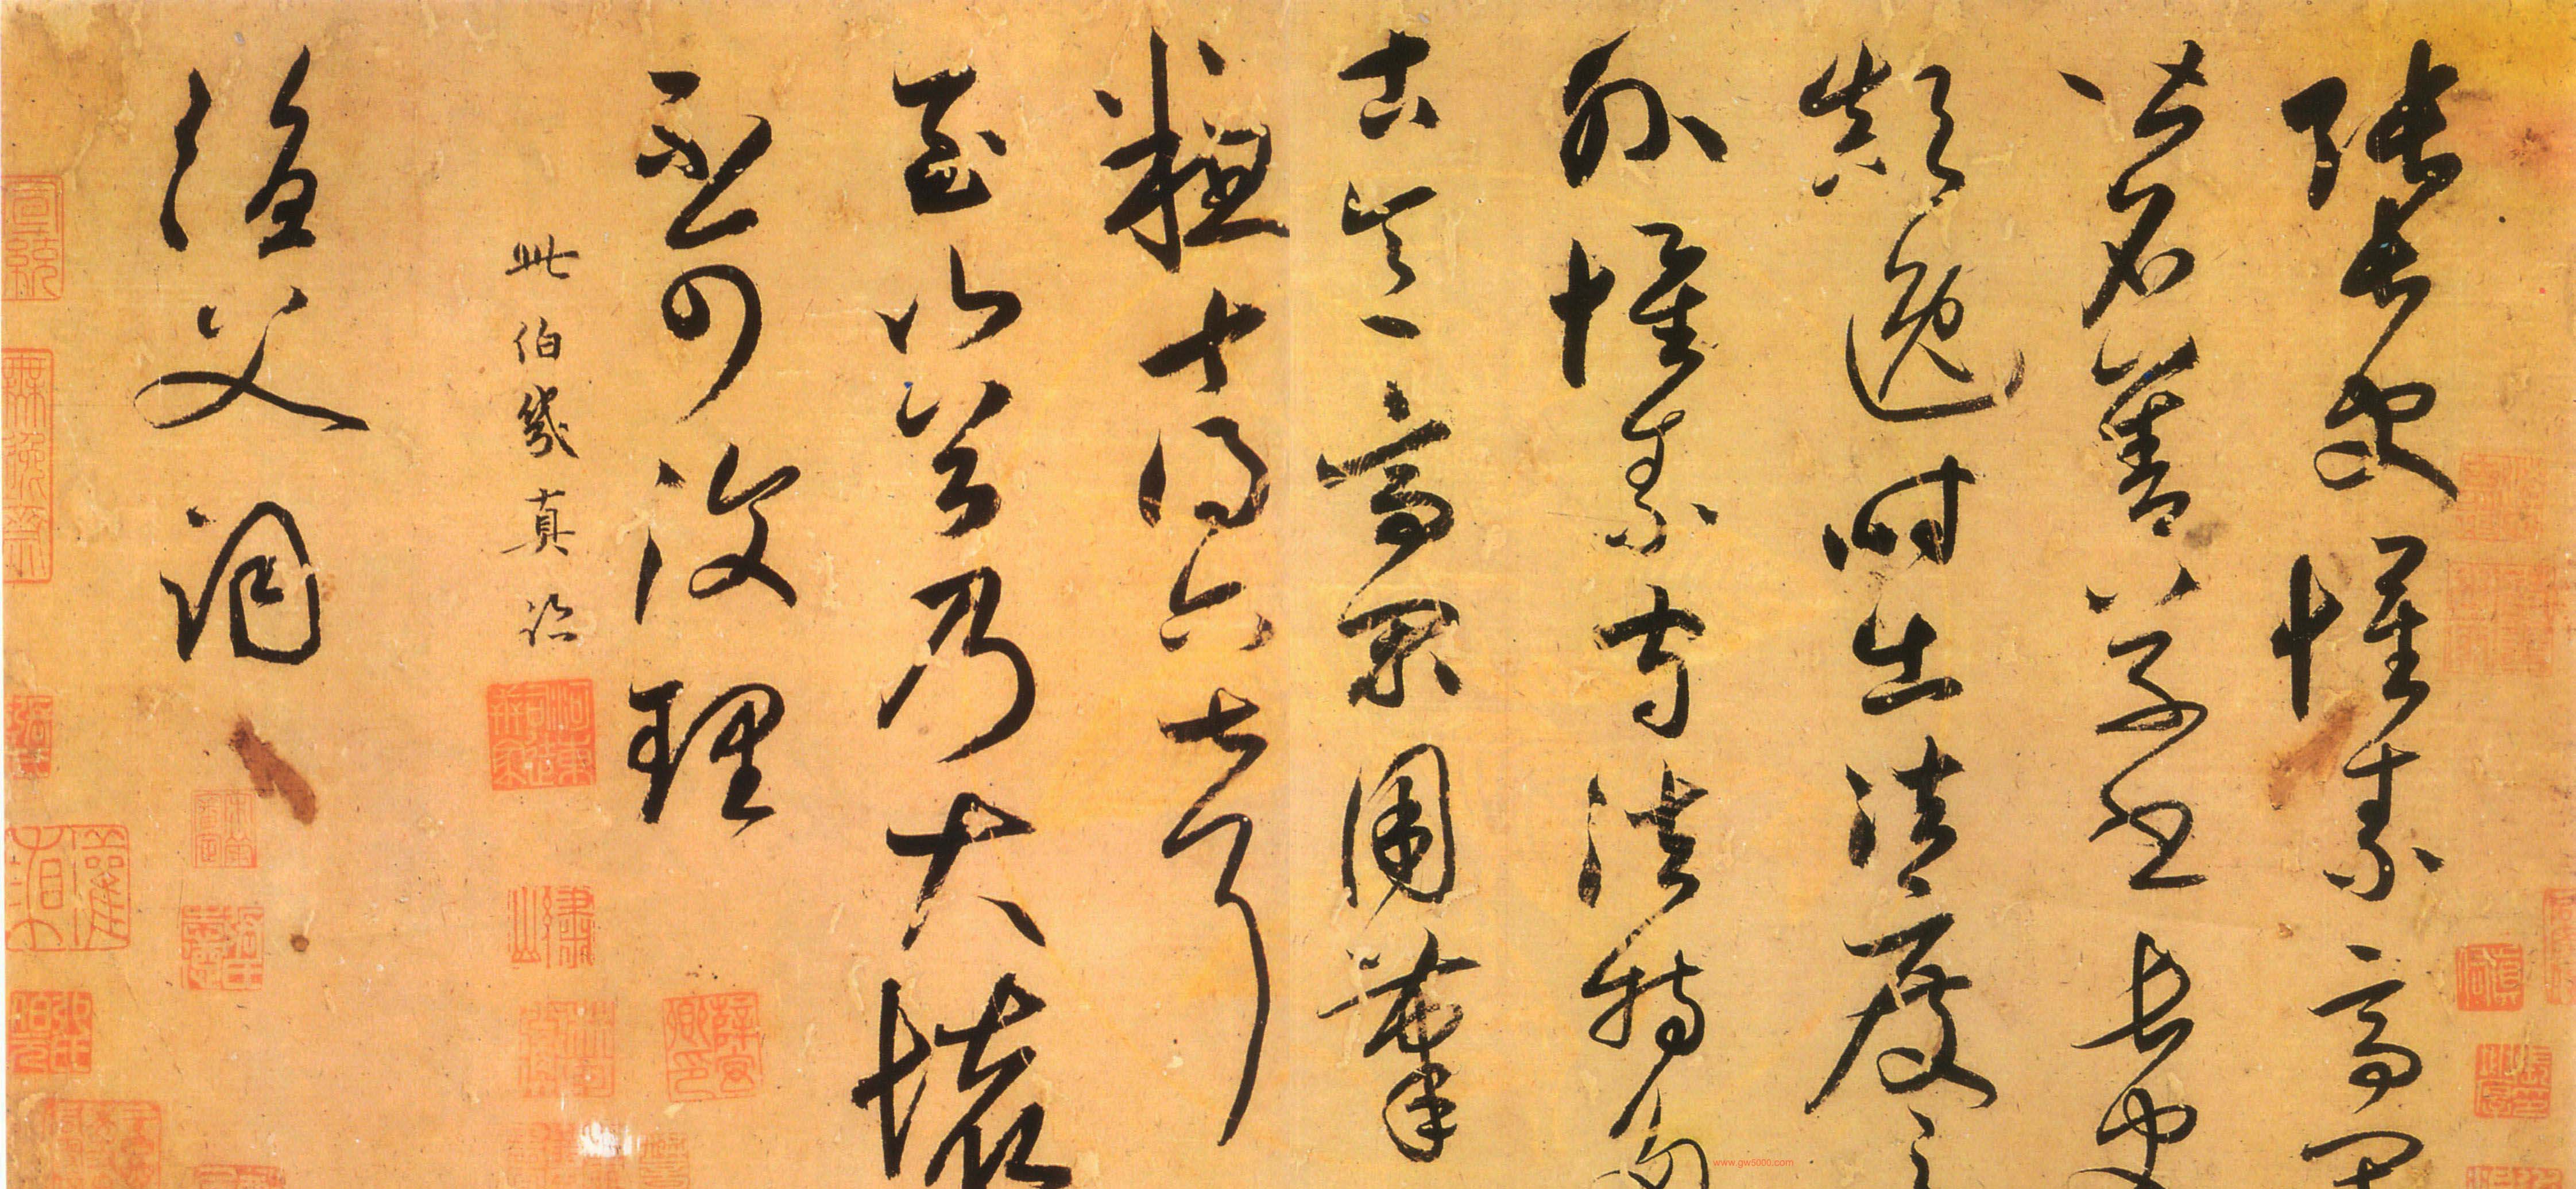 張長史懷素高閑
皆名善草書長史
顛逸時出法度之
外懷素守法特多
古意高閑用筆
粗十得六七耳
至山谷乃大壞
不可復理
此伯幾真
父詞
www.gw5000.com